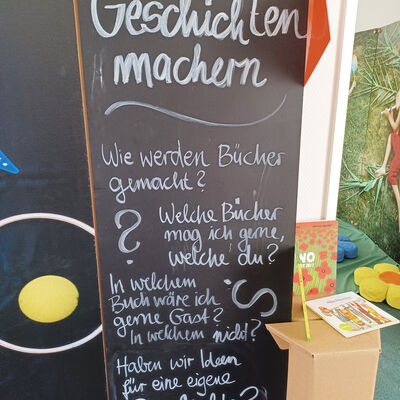 Geschichten
machern
Wie werden Bücher
gemacht?
Welche Bücher
mag ich gerne,
welche du?
In welchem
Buch wäre ich
gerne Gast?
In welchem nicht?
Haben wir Ideen
für eine eigene